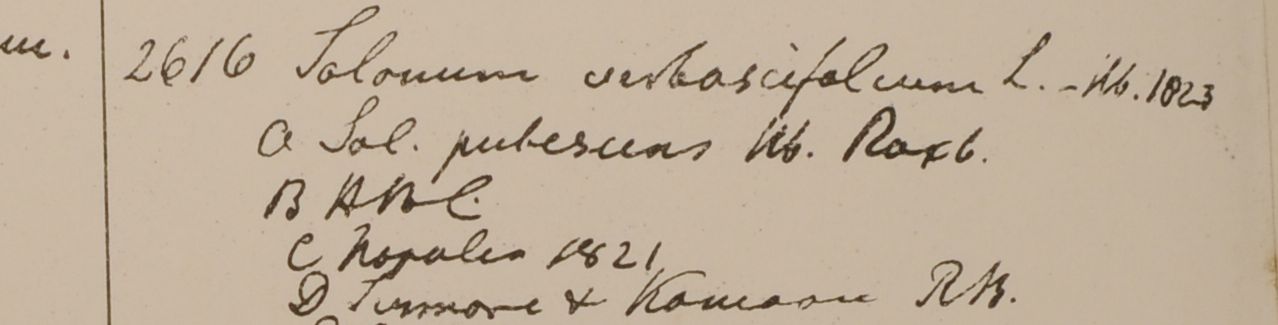 m.
2616 Solanum verbascifolium L. - Hb. 1823
a Sol. pubescens Hb. Roxb.
B HBC.
C Napalia 1821
D Sirmore & Kamaon RB.